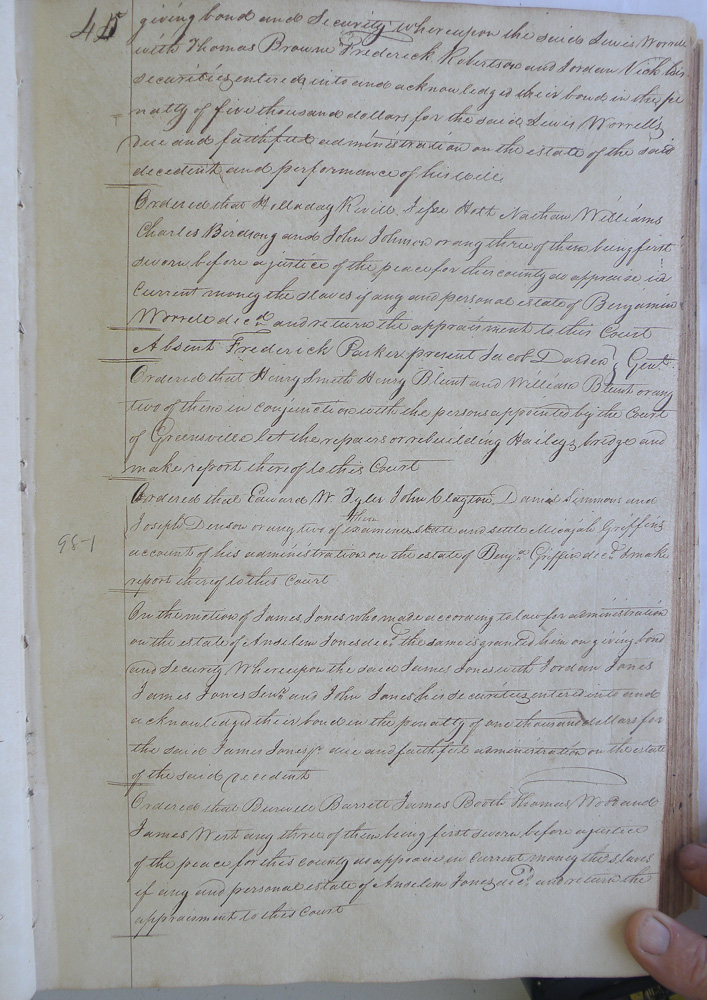 45
giving bond and Security whereupon the said Lewis Worrell
with Thomas Browne Frederick Robertson and Jordan Vick his
Securities entered into and acknowledged their bond in the pe
nalty of five thousand dollars for the said Lewis Worrell's
due and faithful administration on the estate of the said
decedent and performance of his will
Ordered that Holladay Revill Jesse Holt Nathan Williams
Charles Birdsong and John Johnson or any three of them being first
sworn before a justice of the peace for this county do appraise in
Current money the slaves if any and personal estate of Benjamin
Worrell decd. and return the appraisment to this Court
Absent Frederick Parker present Jacob Darden Gent.
Ordered that Henry Smith Henry Blunt and William Blunt or any
two of them in conjunction with the persons appointed by the Court
of Greensville let the repairs or rebuilding Haileys bridge and
make report thereof to this Court
Ordered that Edward W. Tyler John Clayton, Daniel Simmons and
Joseph Denson or any two of them examine state and settle Micajah Griffin's
98-1
account of his administration on the estate of Benja. Griffin decd. & make
report thereof to this Court
On the motion of James Jones who made according to law for administration
on the estate of Anselm Jones decd. the same is granted him on giving bond
and Security Whereupon the said James Jones with Jordan Jones
James Jones Senr. and John Jones his securities entered into and
acknowledged their bond in the penalty of one thousand dollars for
the said James Jones jr due and faithful administration on the estate
of the said decedent
Ordered that Burwell Barrett James Booth Thomas Wood and
James West any three of them being first sworn before a justice
of the peace for this county do appraise in Current money the slaves
if any and personal estate of Anselm Jones decd. and return the
appraisment to this Court